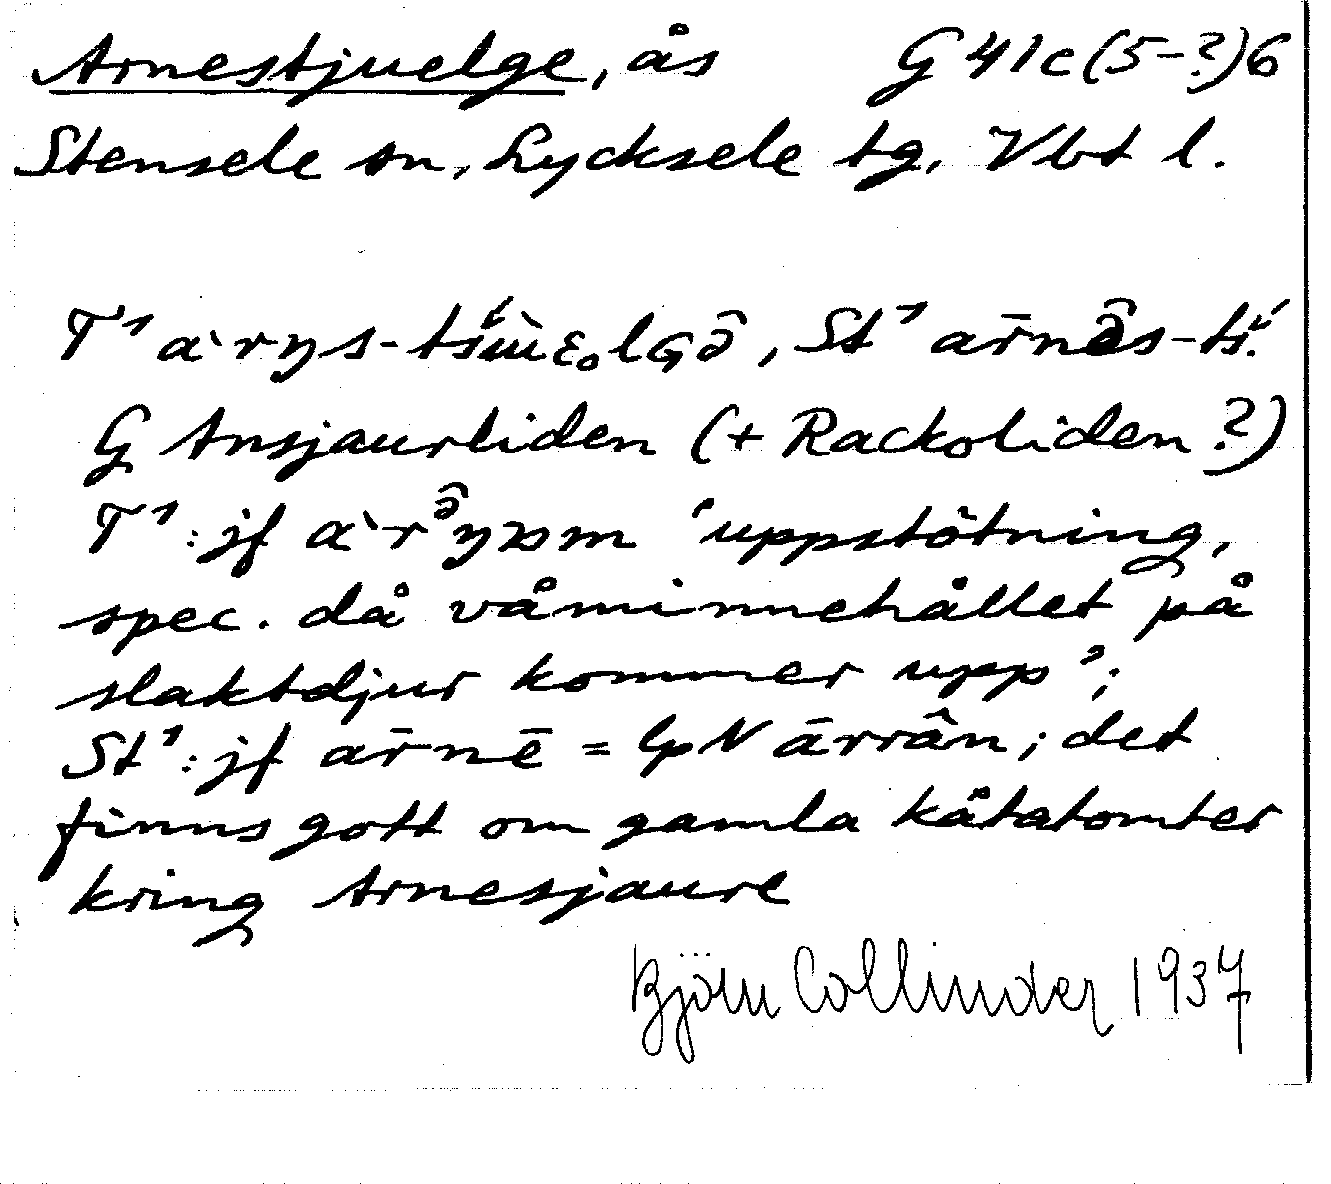 Arnestjuelge, ås G 41 c (5-?) 6
Stensele sn, Lycksele tg, Vbt l.
T¹ St¹ ār̄nə̑s-tš́.
G Ansjaurliden (+ Rackoliden ?)
T¹: jf 'uppstötning,
spec. då våminnehållet på
slaktdjur kommer upp';
St¹: jf ār̄nē = lpN ārrân; det
finns gott om gamla kåtatomter
kring Arnesjaure
Björn Collinder 1937